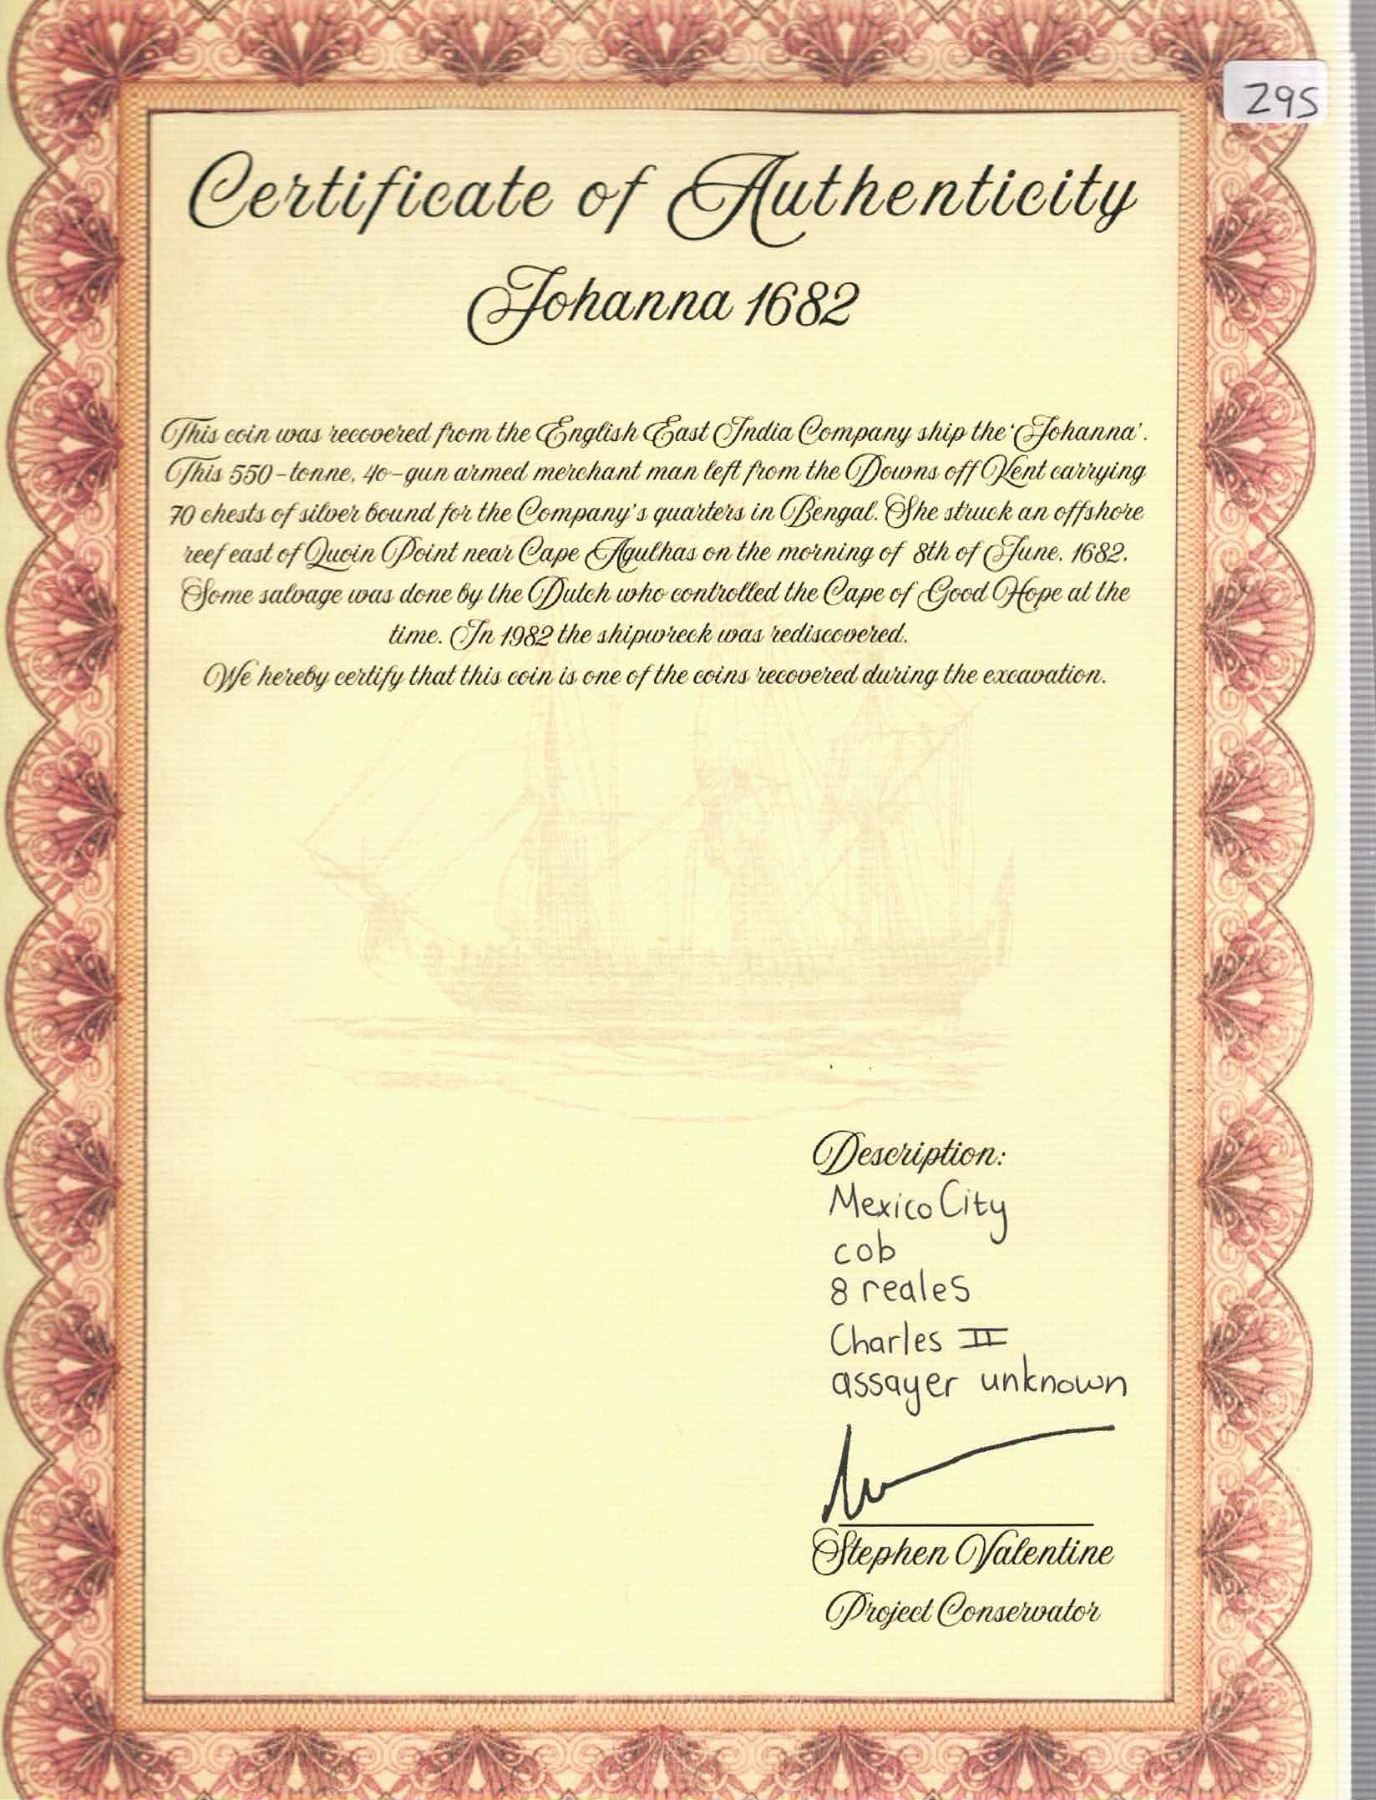 295
Certificate of Authenticity
Johanna 1682
This coin was recovered from the English East India Company ship the 'Johanna'.
This 550-tonne, 40-gun armed merchant man left from the Downs off Kent carrying
70 chests of silver bound for the Company's quarters in Bengal. She struck an offshore
reef east of Quoin Point near Cape Agulhas on the morning of 8th of June, 1682.
Some salvage was done by the Dutch who controlled the Cape of Good Hope at the
time. In 1982 the shipwreck was rediscovered.
We hereby certify that this coin is one of the coins recovered during the excavation.
Description:
Mexico City
cob
8 reales
Charles II
assayer unknown
Stephen Valentine
Project Conservator